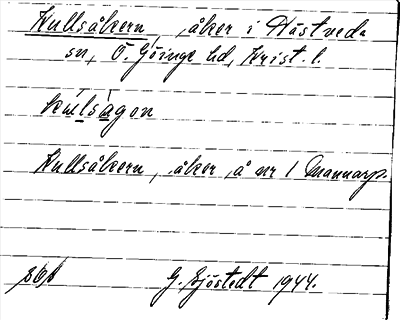 Kullsåkern, åker i Hästveda
sn, Ö. Göinge hd, Krist. l.
kulsågon
Kullsåkern, åker å nr 1 Mannarp.
G. Sjöstedt 1944.